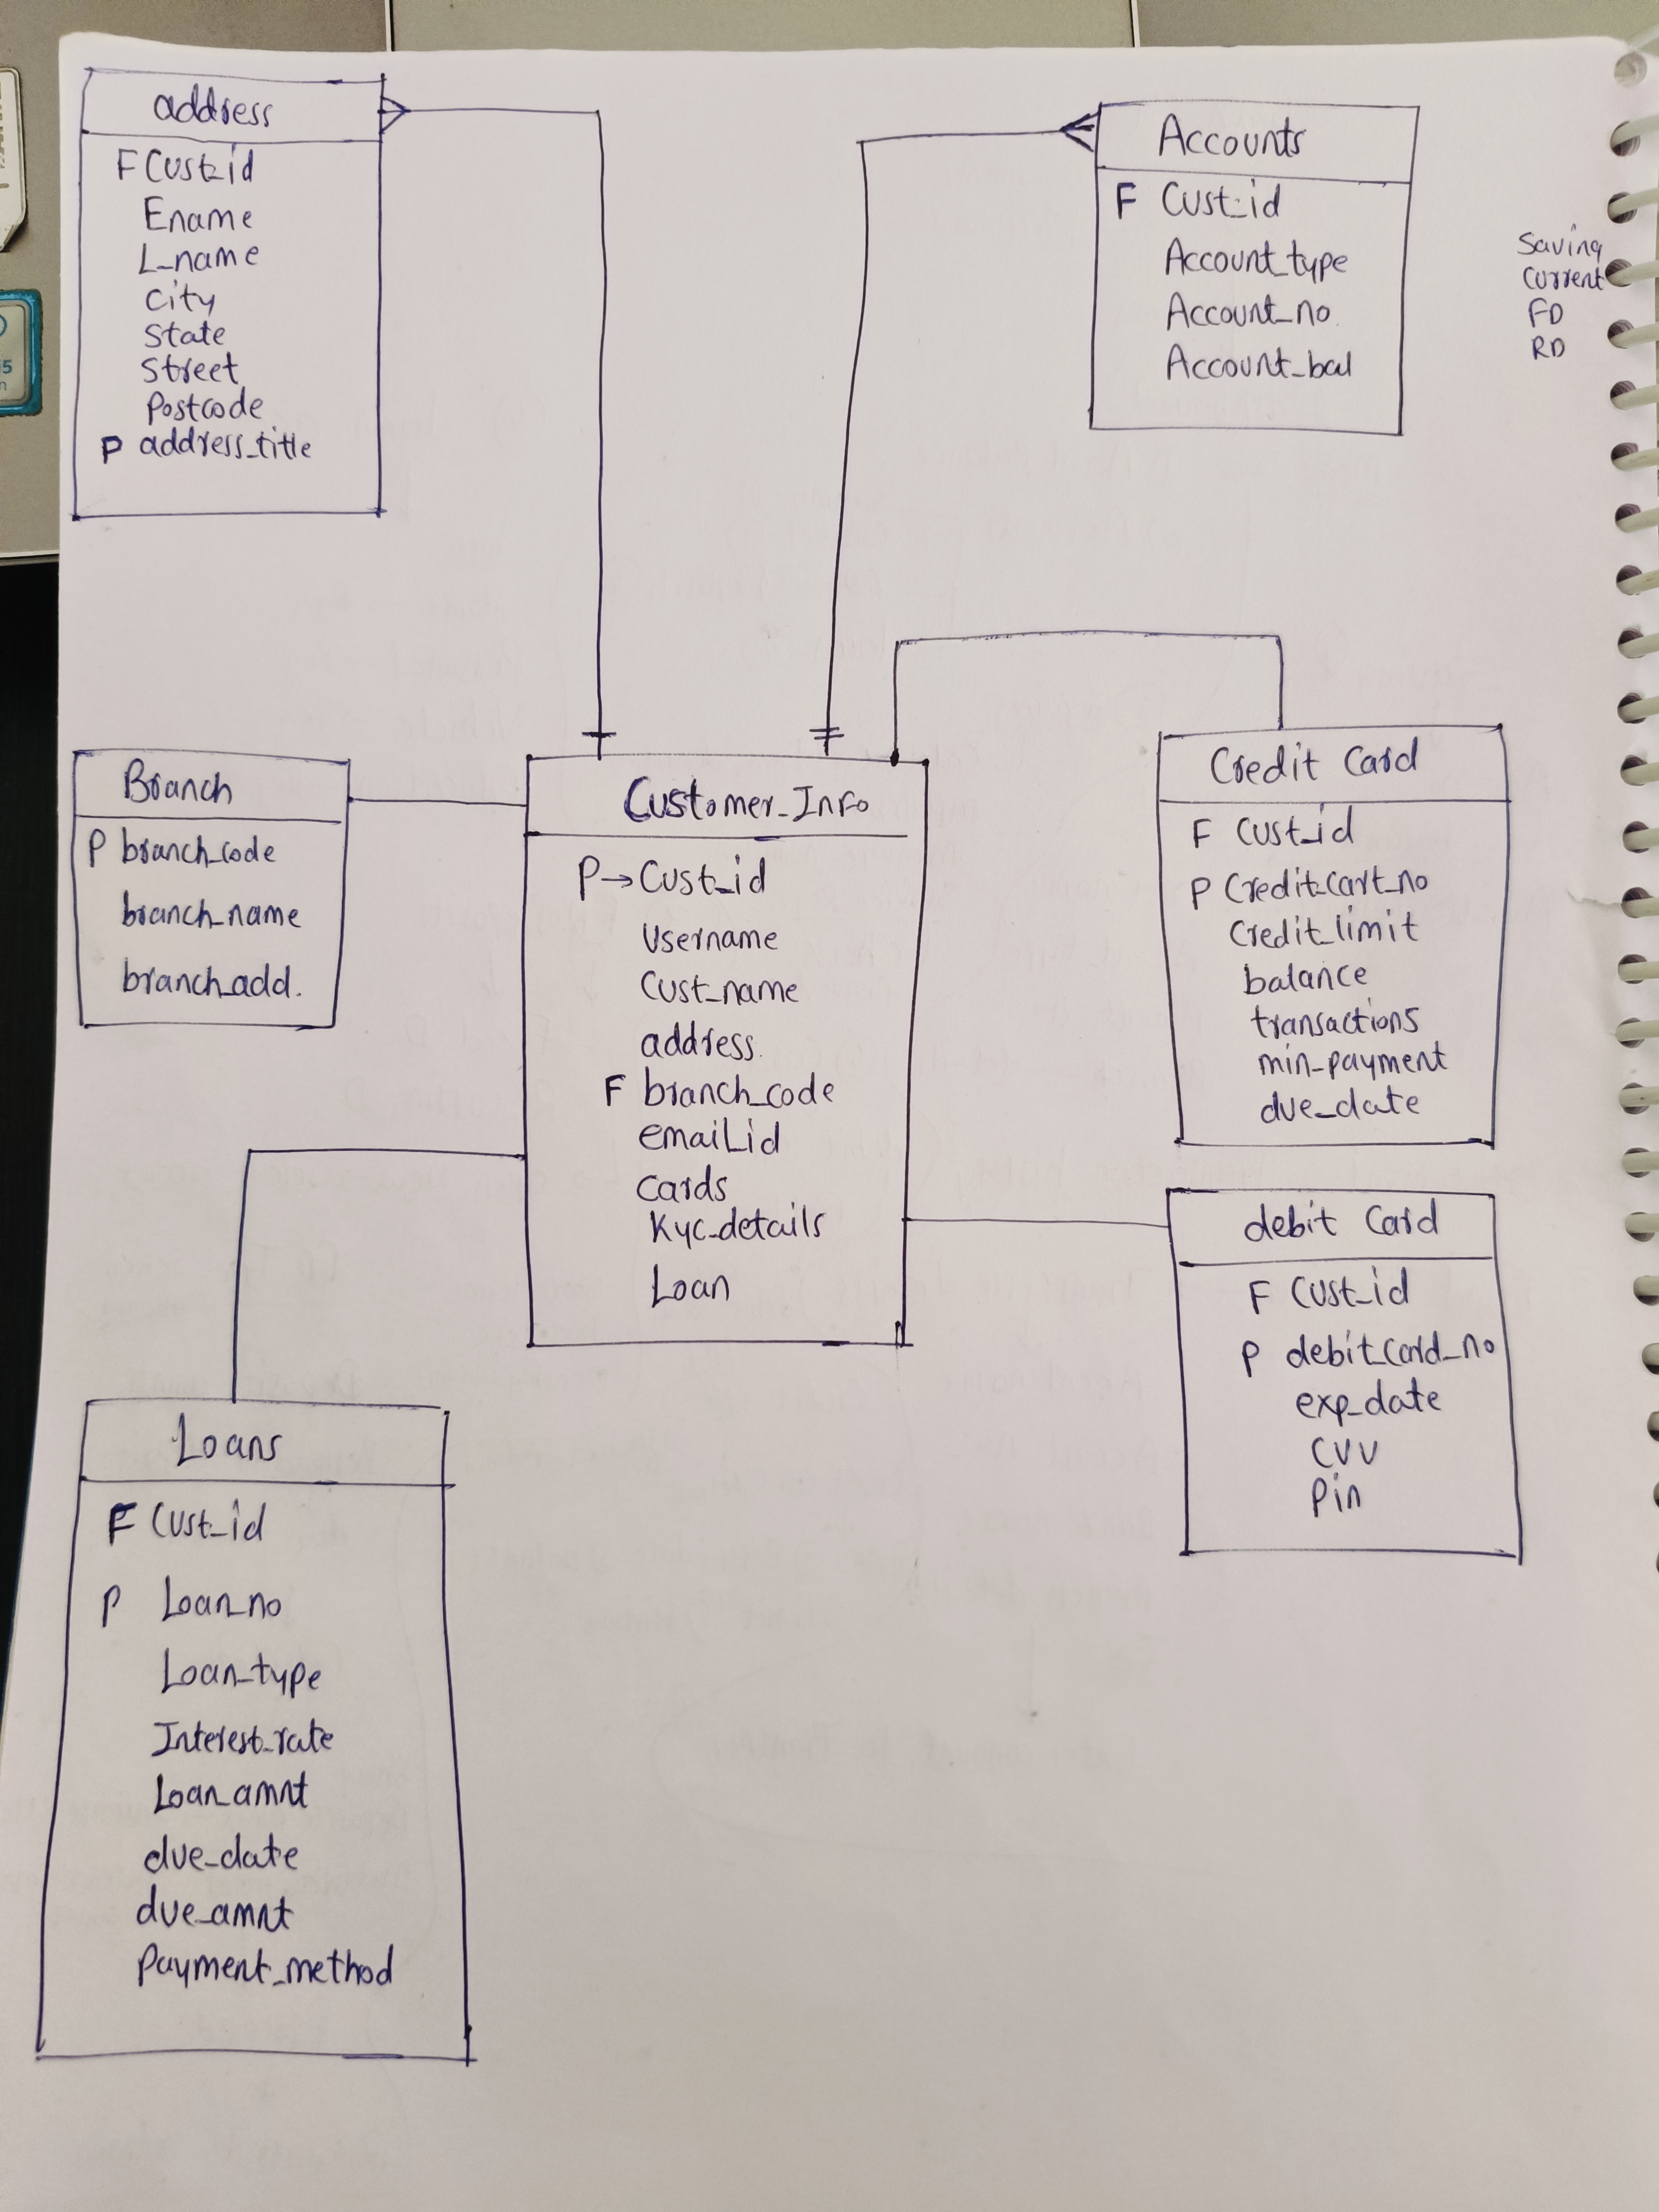 address
F Cust_id
Ename
L_name
City
State
Street
Postcode
P address_title
Accounts
F Cust_id
Account_type
Account_no
Account_bal
Saving
Current
FD
RD
Branch
P branch_code
branch_name
branch_add.
Customer_Info
P→Cust_id
Username
Cust_name
address.
F branch_code
email_id
Cards
Kyc_details
Loan
Credit Card
F Cust_id
P Credit_Cart_no
Credit_limit
balance
transactions
min_payment
due_date
debit Card
F Cust_id
P debit_card_no
exp_date
CVV
Pin
Loans
F Cust_id
P Loan_no
Loan_type
Interest_rate
Loan_amnt
due_date
due_amnt
Payment_method